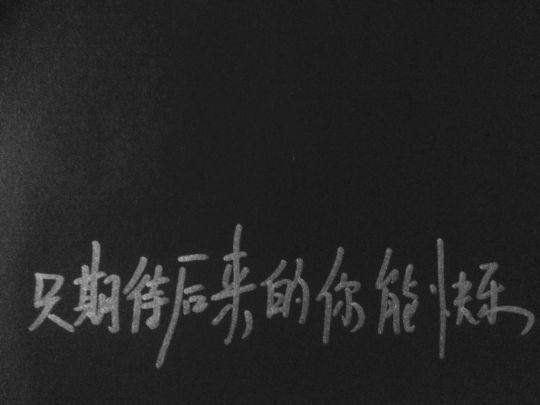 只期待后来的你能快乐